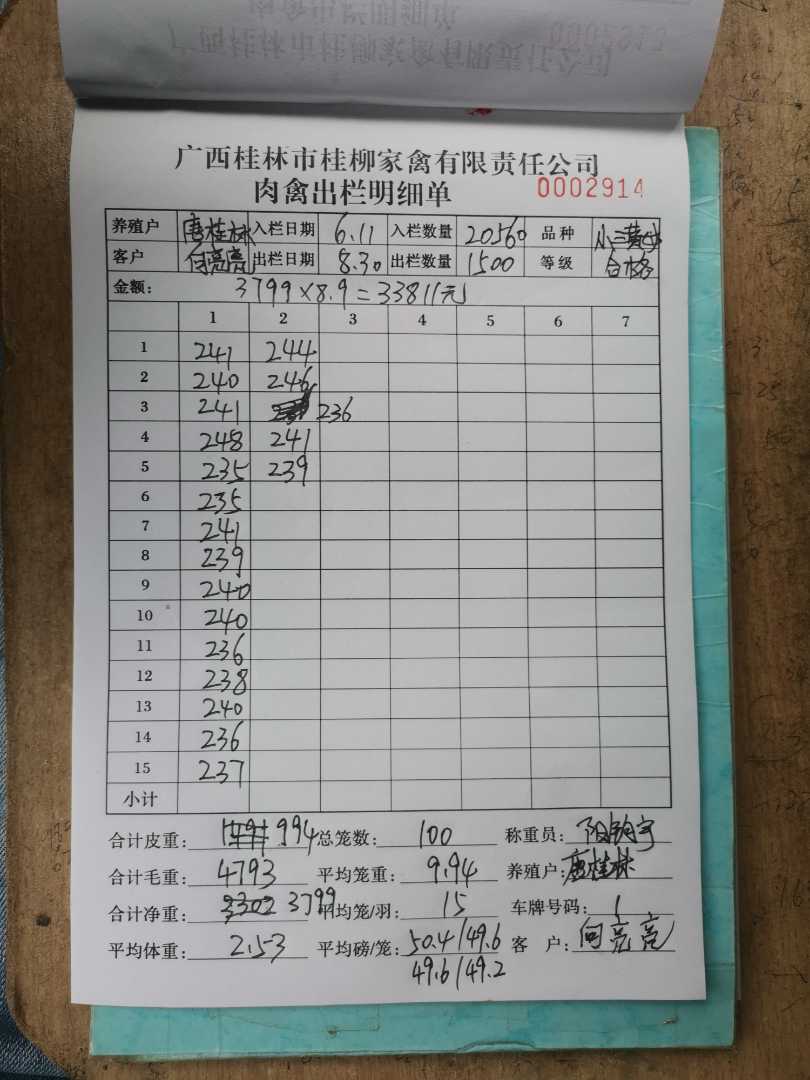 广西桂林市桂柳家禽有限责任公司
肉禽出栏明细单 0002914
养殖户 唐桂林 入栏日期 6.11 入栏数量 20560 品种 小三黄
客户 何亮亮 出栏日期 8.30 出栏数量 1500 等级 合格
金额: 3799×8.9=33811元
1 2 3 4 5 6 7
1 241 244
2 240 246
3 241 236
4 248 241
5 235 239
6 235
7 241
8 239
9 240
10 240
11 236
12 238
13 240
14 236
15 237
小计
合计皮重: 994 总笼数: 100 称重员:
合计毛重: 4793 平均笼重: 9.94 养殖户: 唐桂林
合计净重: 3302 3799 平均笼/羽: 15 车牌号码: 1
平均体重: 2.53 平均磅/笼: 50.4/49.6 客 户: 何亮亮
49.6/49.2